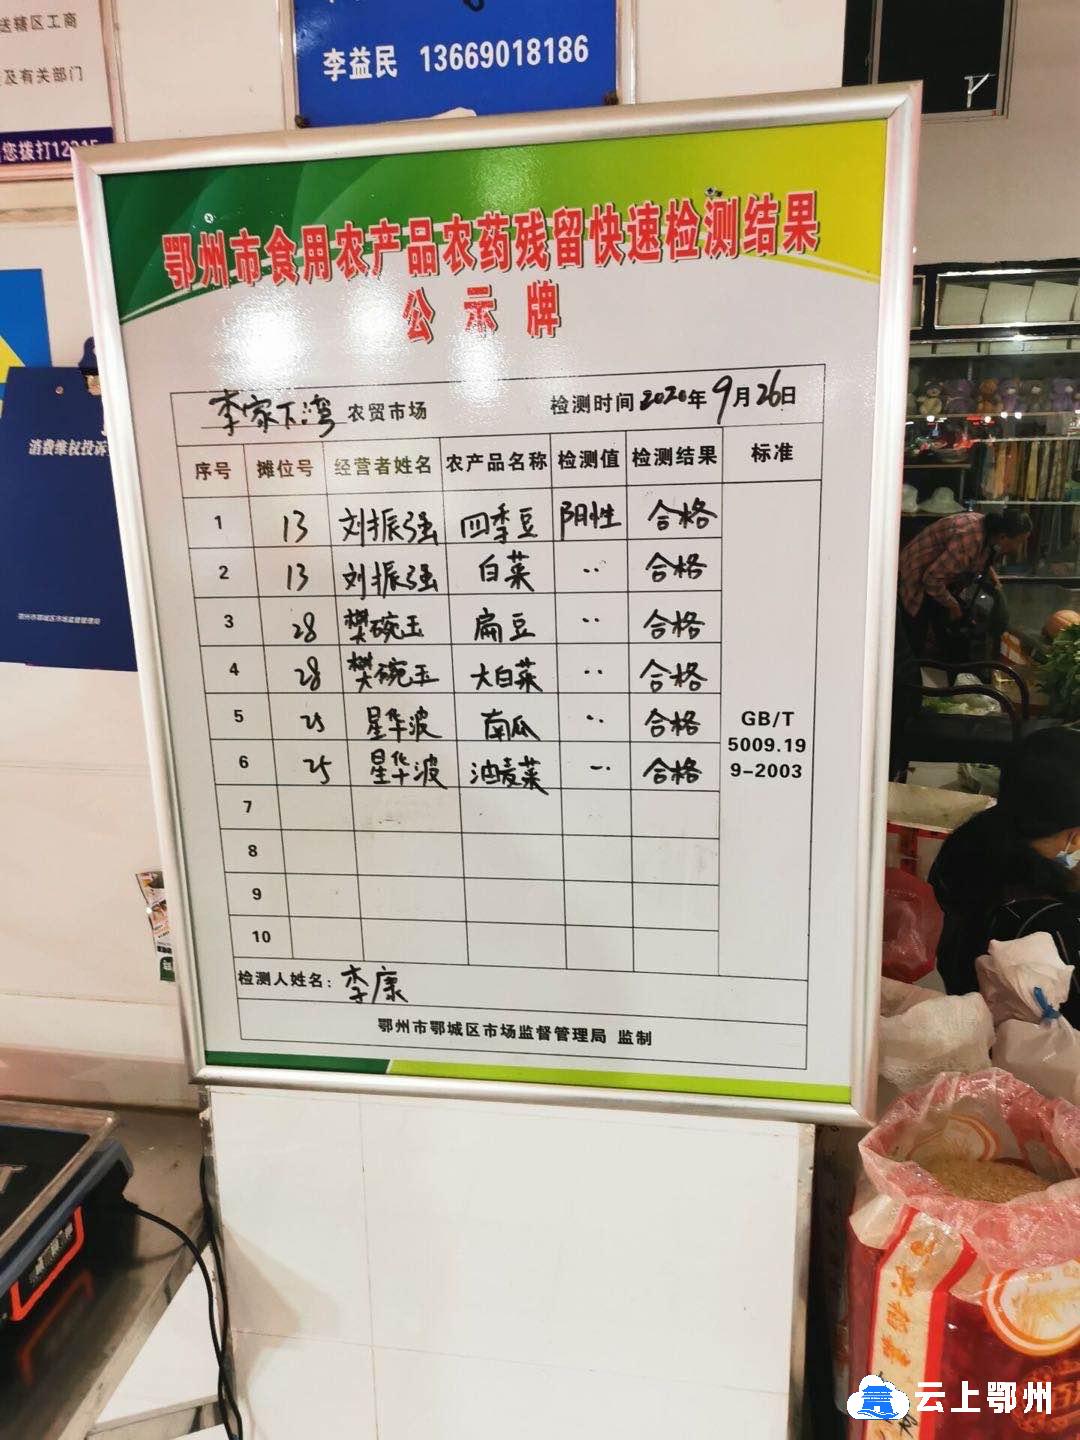 送辖区工商
及有关部门
您拨打12315
李益民 13669018186
消费维权投诉
鄂州市鄂城区市场监督管理局
鄂州市食用农产品农药残留快速检测结果
公示牌
李家下湾 农贸市场 检测时间 2020年9月26日
序号 摊位号 经营者姓名 农产品名称 检测值 检测结果 标准
1 13 刘振强 四季豆 阴性 合格
2 13 刘振强 白菜 ·· 合格
3 28 樊碗玉 扁豆 ·· 合格
4 28 樊碗玉 大白菜 ·· 合格
5 25 星华波 南瓜 ·· 合格
6 25 星华波 油麦菜 ·· 合格
7
8
9
10
GB/T
5009.19
9-2003
检测人姓名：李康
鄂州市鄂城区市场监督管理局 监制
云上鄂州